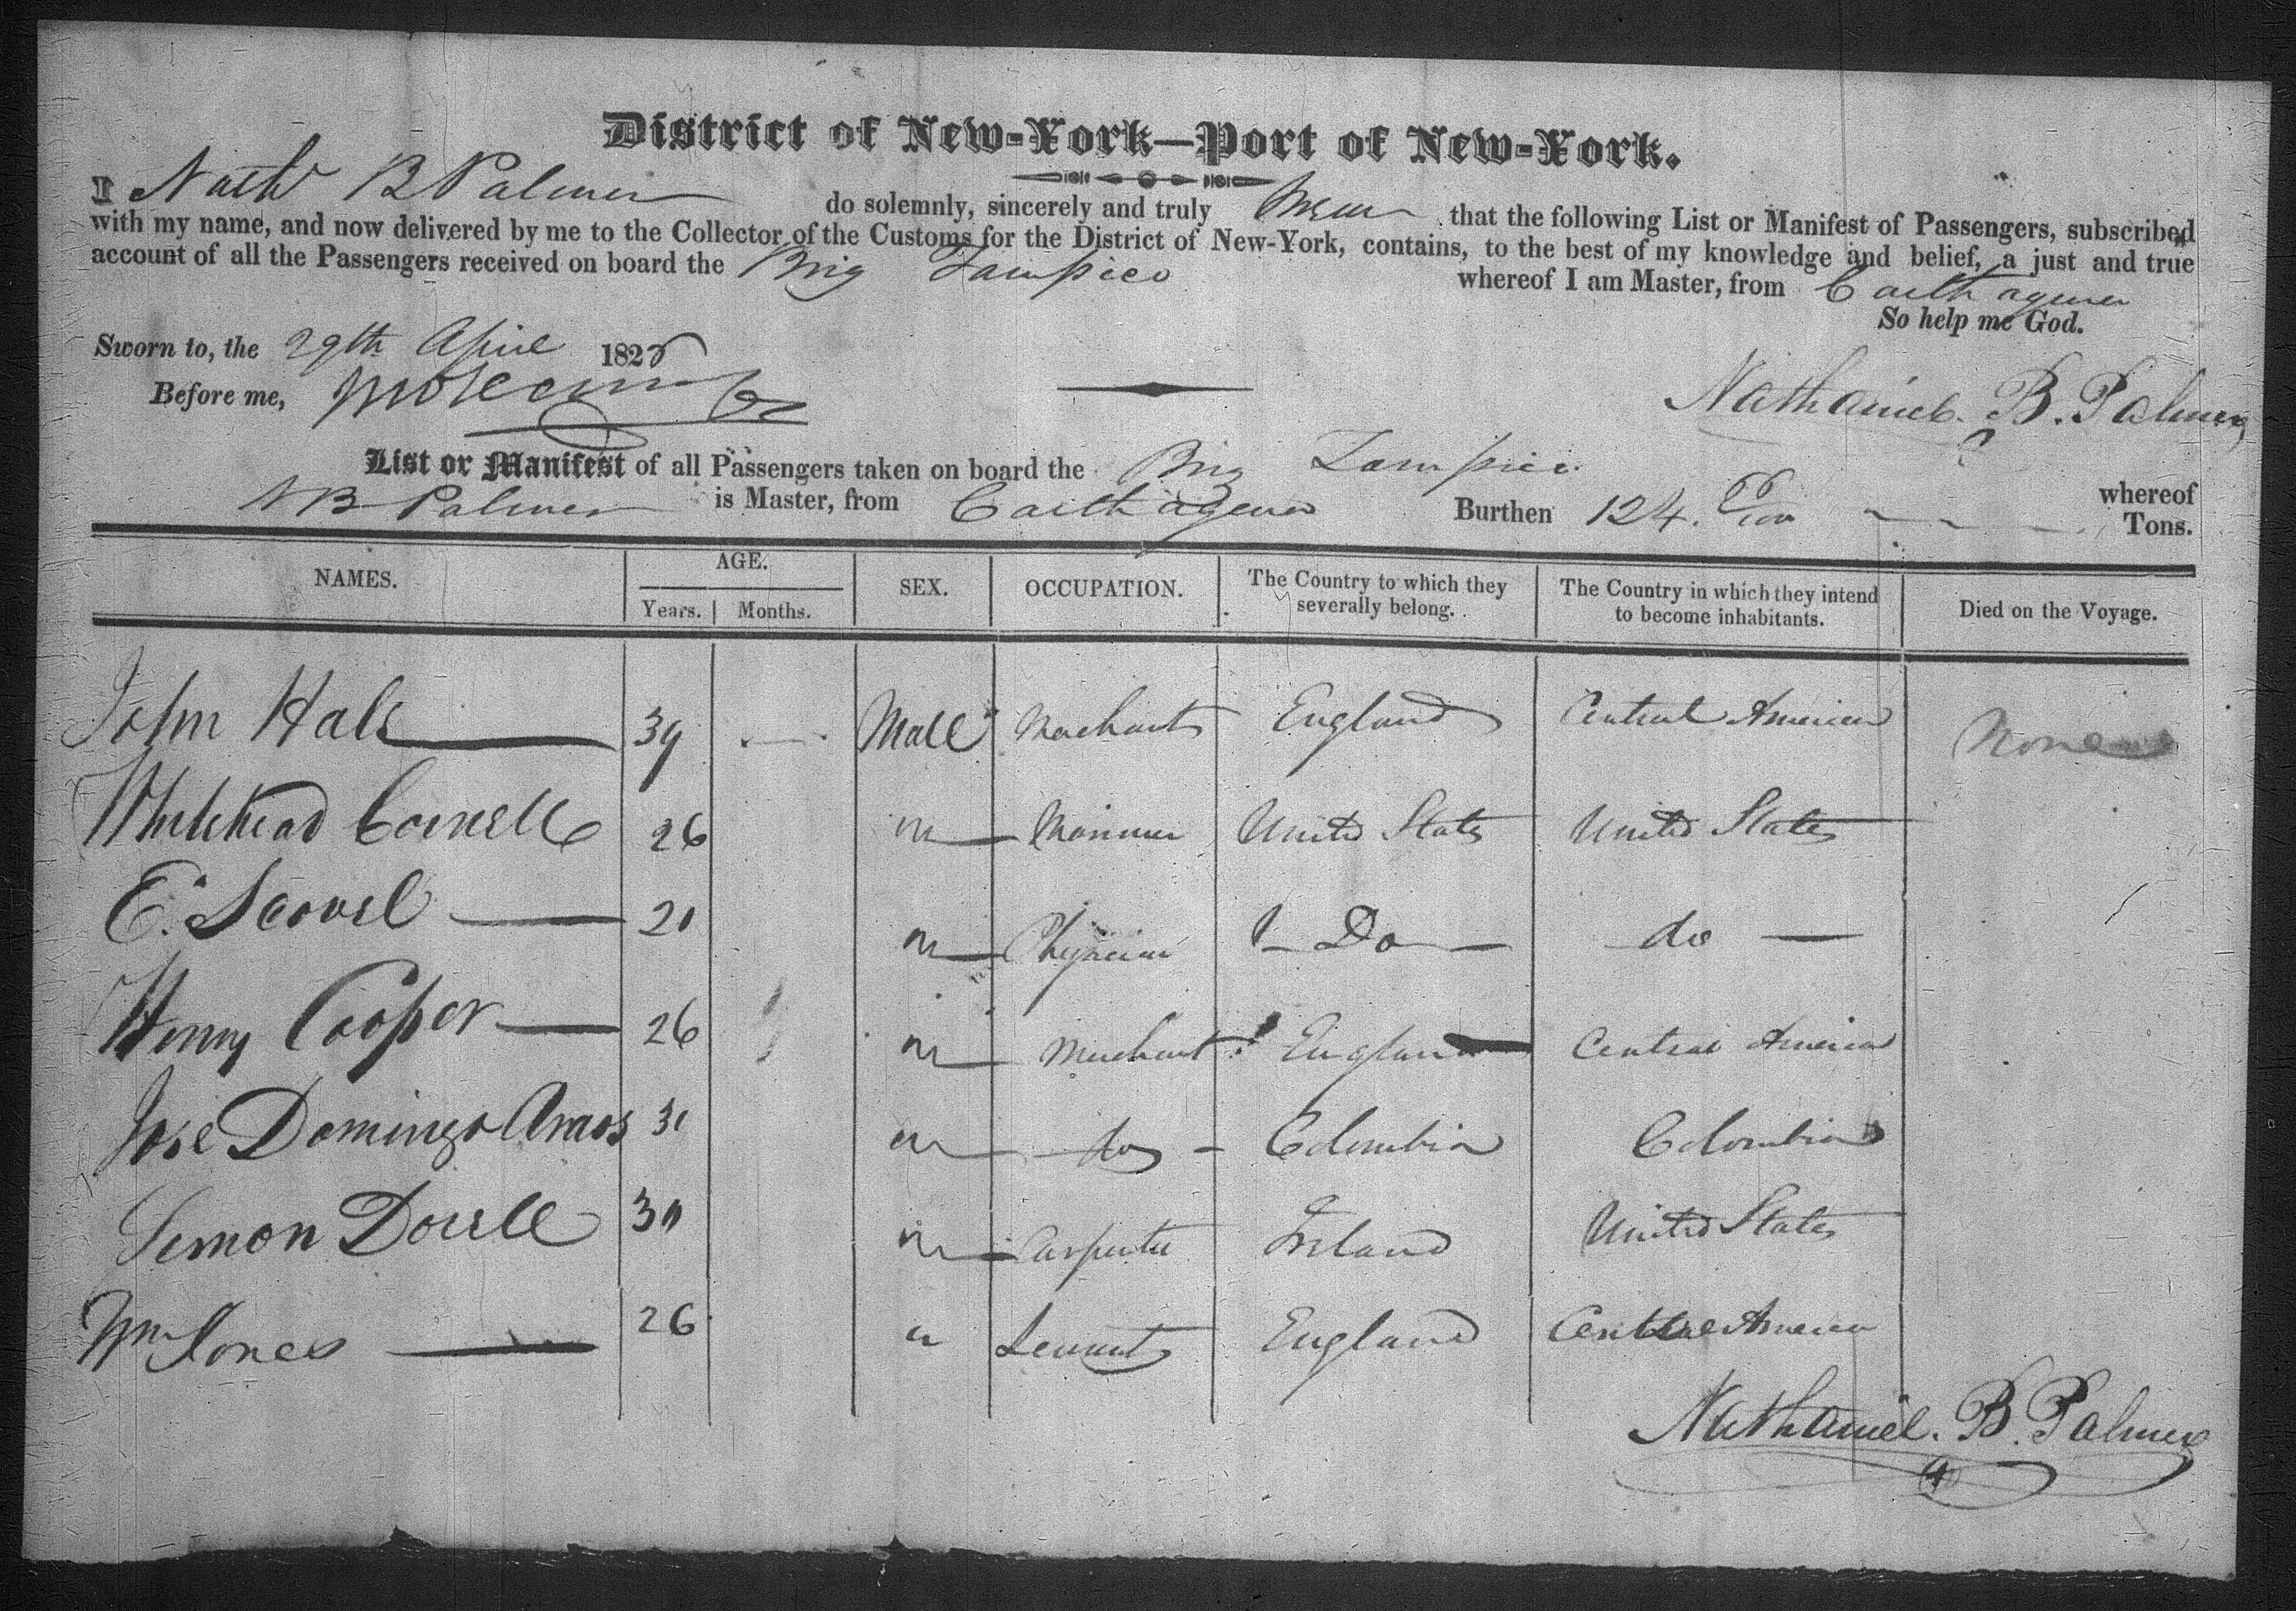 District of New-York—Port of New-York.
I Nathl B Palmer do solemnly, sincerely and truly Swear that the following List or Manifest of Passengers, subscribed
with my name, and now delivered by me to the Collector of the Customs for the District of New-York, contains, to the best of my knowledge and belief, a just and true
account of all the Passengers received on board the Brig Tampico whereof I am Master, from Carthagena
So help me God.
Sworn to, the 29th April 182
Before me,
Nathaniel. B. Palmer
List or Manifest of all Passengers taken on board the Brig Tampico whereof
N B Palmer is Master, from Carthagena Burthen 124 Tons.
NAMES. AGE. SEX. OCCUPATION. The Country to which they severally belong. The Country in which they intend to become inhabitants. Died on the Voyage.
Years. Months.
John Hale 39 Male Merchant England Central America None
Whitehead Cornell 26 m Mariner United States United States
E. Scovel 21 m Physician Do do
Henry Cooper 26 m Merchant England Central America
Jose Domingo Amaos 31 m do Colombia Colombia
Semon Doyle 30 m Carpenter Ireland United States
Wm Jones 26 m Servant England Central America
Nathaniel. B. Palmer